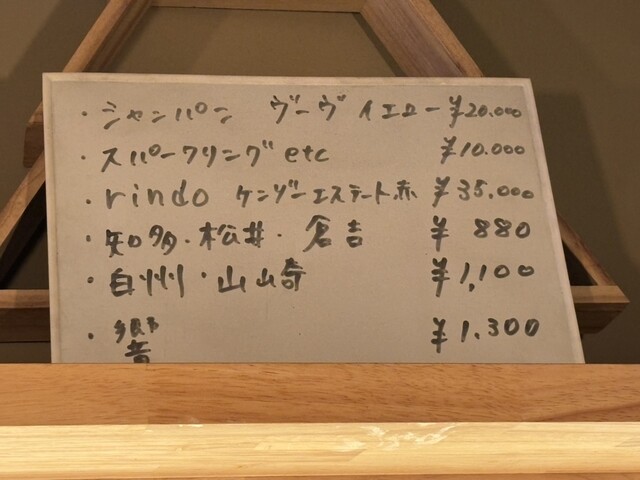 ・シャンパン ヴーヴ イエロー ¥20.000
・スパークリング etc ¥10.000
・rindo ケンゾーエステート赤 ¥35,000
・知多・松井・倉吉 ¥880
・白州・山崎 ¥1,100
・響 ¥1.300